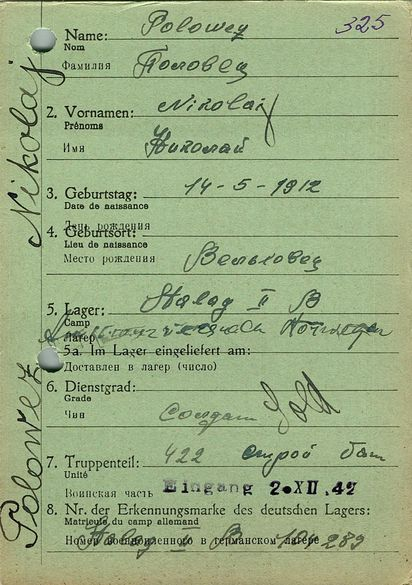 325
Name: Polowez
Nom
Фамилия Половец
2. Vornamen: Nikolaj
Prénoms
Имя Николай
3. Geburtstag: 14-5-1912
Date de naissance
День рождения
4. Geburtsort:
Lieu de naissance
Место рождения Вельховец
5. Lager: Stalag II B
Camp
Лагерь
5a. Im Lager eingeliefert am:
Доставлен в лагер (число)
6. Dienstgrad: Sold
Grade
Чин Солдат
7. Truppenteil: 422 строй бат
Unité
Воинская часть Eingang 2. XII. 42
8. Nr. der Erkennungsmarke des deutschen Lagers:
Matricule du camp allemand
Номер военнопленного в германском лагере
Stalag II B
Polowez Nikolaj